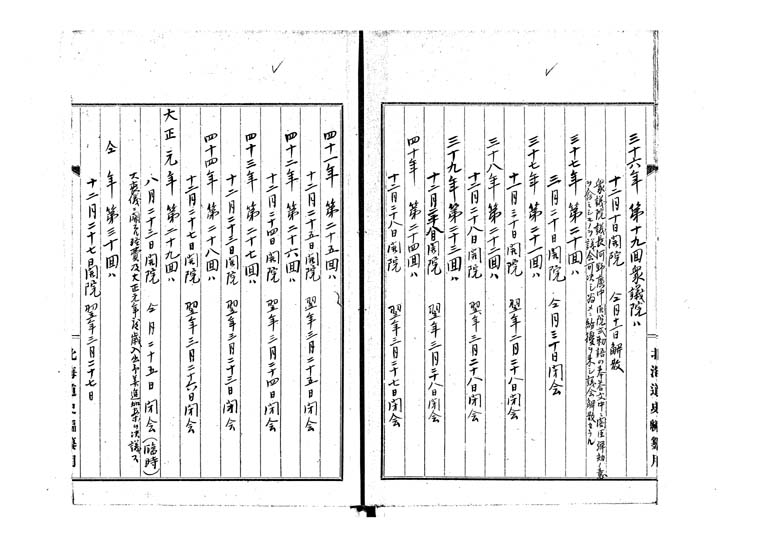 三十六年 第十九回衆議院ハ
十二月十日開院 仝月十一日解散
衆議院議長河野廣中開院式勅語の奉答文中ニ閣臣弾劾ノ意
三十七年 第二十回ハ
三月二十日開院 仝月三十日閉会
三十七年 第二十一回ハ
十一月三十日開院 翌年二月二十八日閉会
三十八年 第二十二回ハ
十二月二十八日開院 翌年三月二十八日閉会
三十九年 第二十三回ハ
十二月 日開院 翌年三月二十八日閉会
四十年 第二十四回ハ
十二月二十八日開院 翌年三月二十七日閉会
四十一年 第二十五回ハ
十二月二十五日開院 翌年三月二十五日閉会
四十二年 第二十六回ハ
十二月二十四日開院 翌年三月二十四日閉会
四十三年 第二十七回ハ
十二月二十三日開院 翌年三月二十三日閉会
四十四年 第二十八回ハ
十二月二十七日開院 翌年三月二十六日閉会
大正元年 第二十九回ハ
八月二十三日開院 仝月二十五日閉会(臨時)
大喪儀ニ関スル経費及大正元年度歳入出予算追加案ヲ決議ス
仝年 第三十回ハ
十二月二十七日開院 翌年三月二十七日
北海道史編纂用
北海道史編纂用